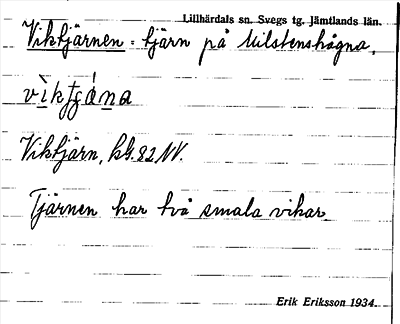 Lillhärdals sn. Svegs tg. Jämtlands län.
Viktjärnen = tjärn på Milstenshågna.
Viktjärn, kbl. 82 NV.
Tjärnen har två smala vikar
Erik Eriksson 1934.